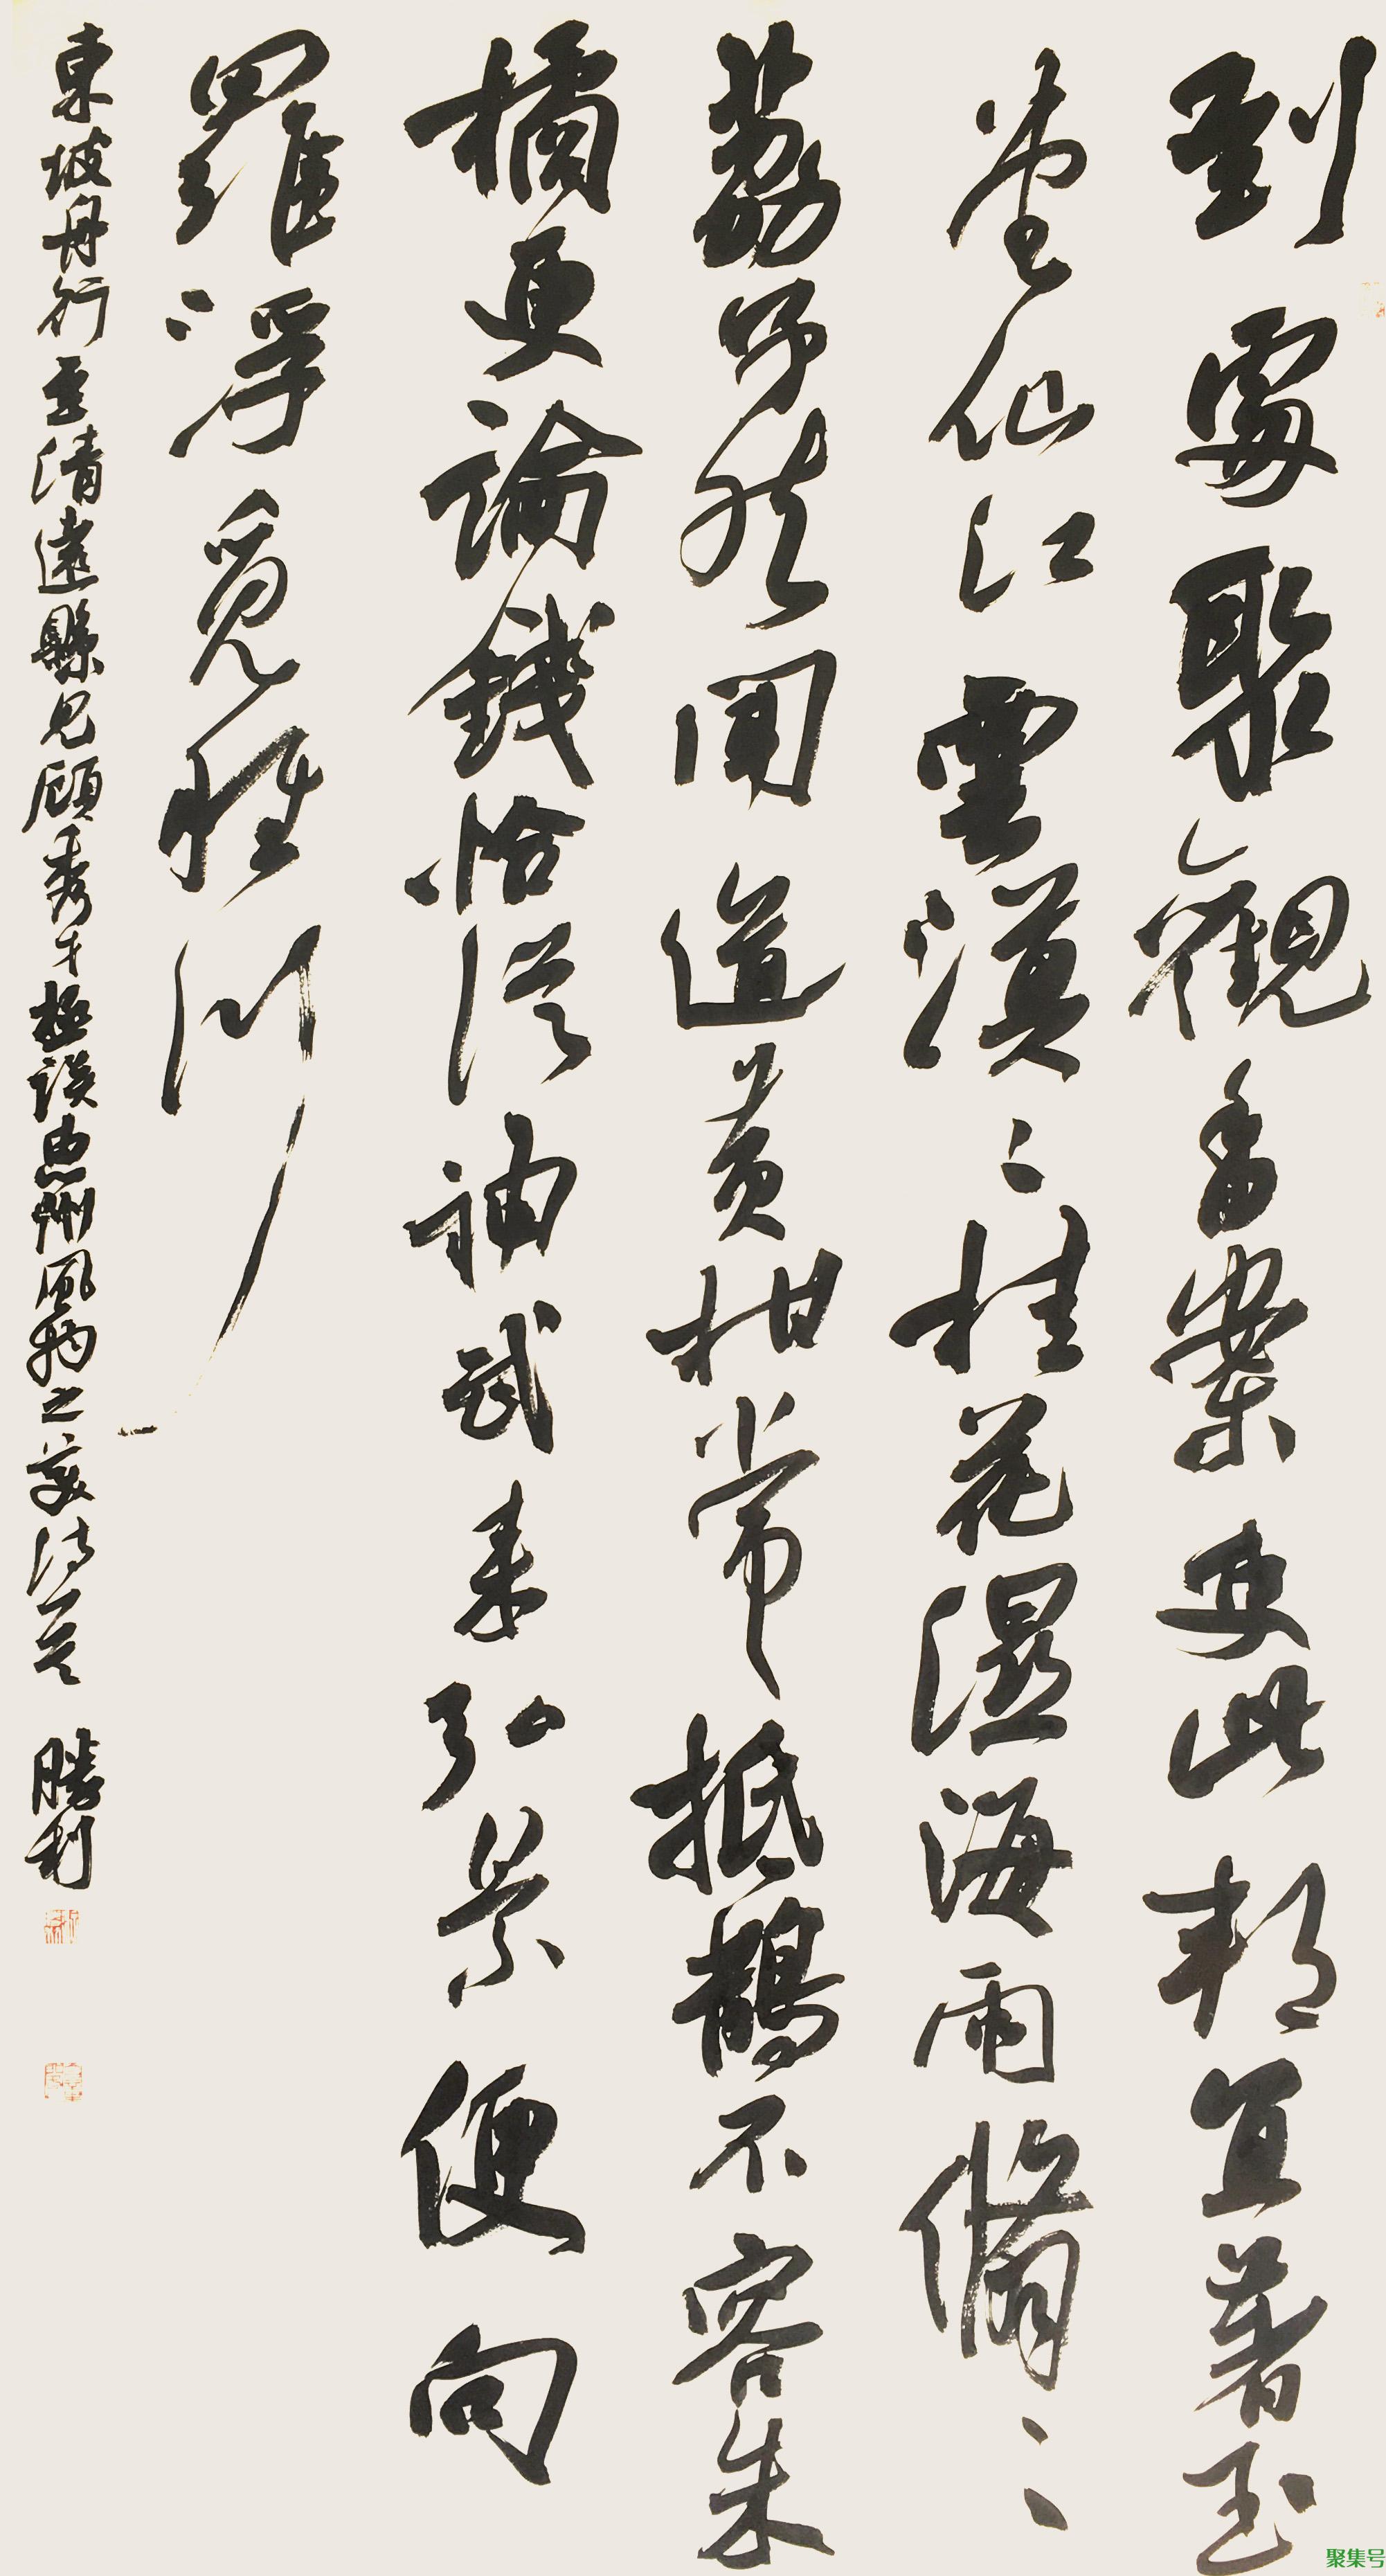 到處聚觀香案吏此邦宜著玉
堂仙江雲漠〻桂花濕海雨翛〻
荔子然聞道黃柑常抵鵲不容朱
橘更論錢恰從神武来弘景便向
羅浮覓稚川
東坡舟行至清遠縣見顧秀才極談惠州風物之美詩一首 勝利
聚集号